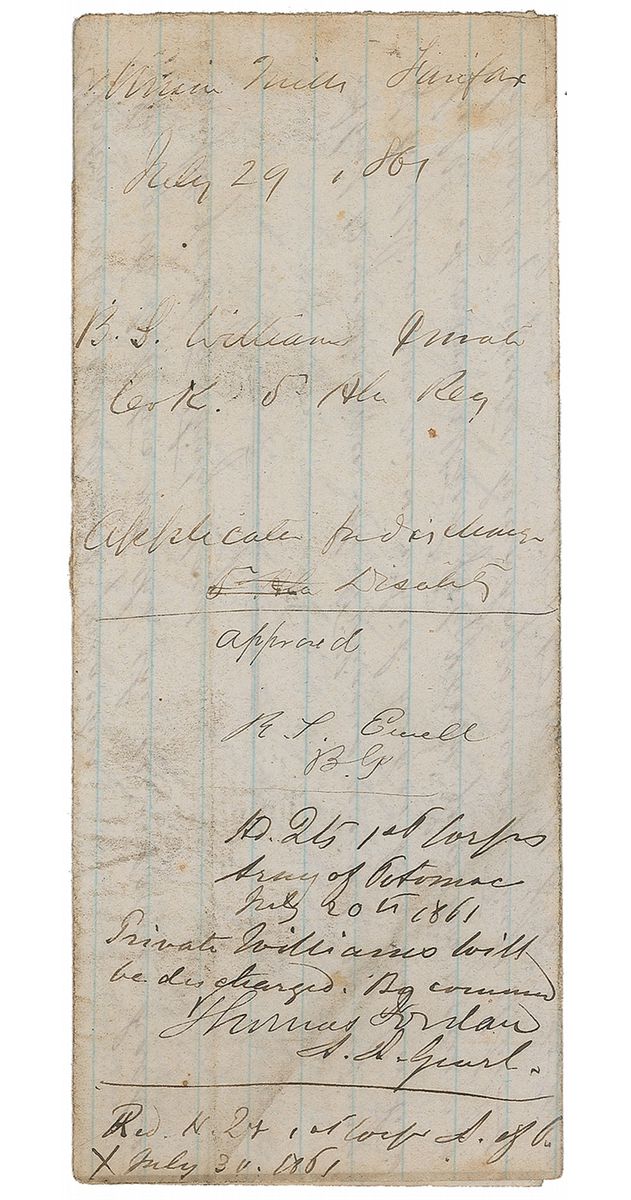 Union Mills Fairfax
July 29 1861
B. S. Williams Private
Co K. 5 Ala Reg
Application for discharge
5 Ala Disability
approved
R S. Ewell
B. G
Hd. Qts 1st Corps
Army of Potomac
July 30th 1861
Private Williams will
be discharged. By command
Thomas Jordan
A. A. Genrl.
Rec. H. Qr 1st Corps A. of P.
X July 30. 1861